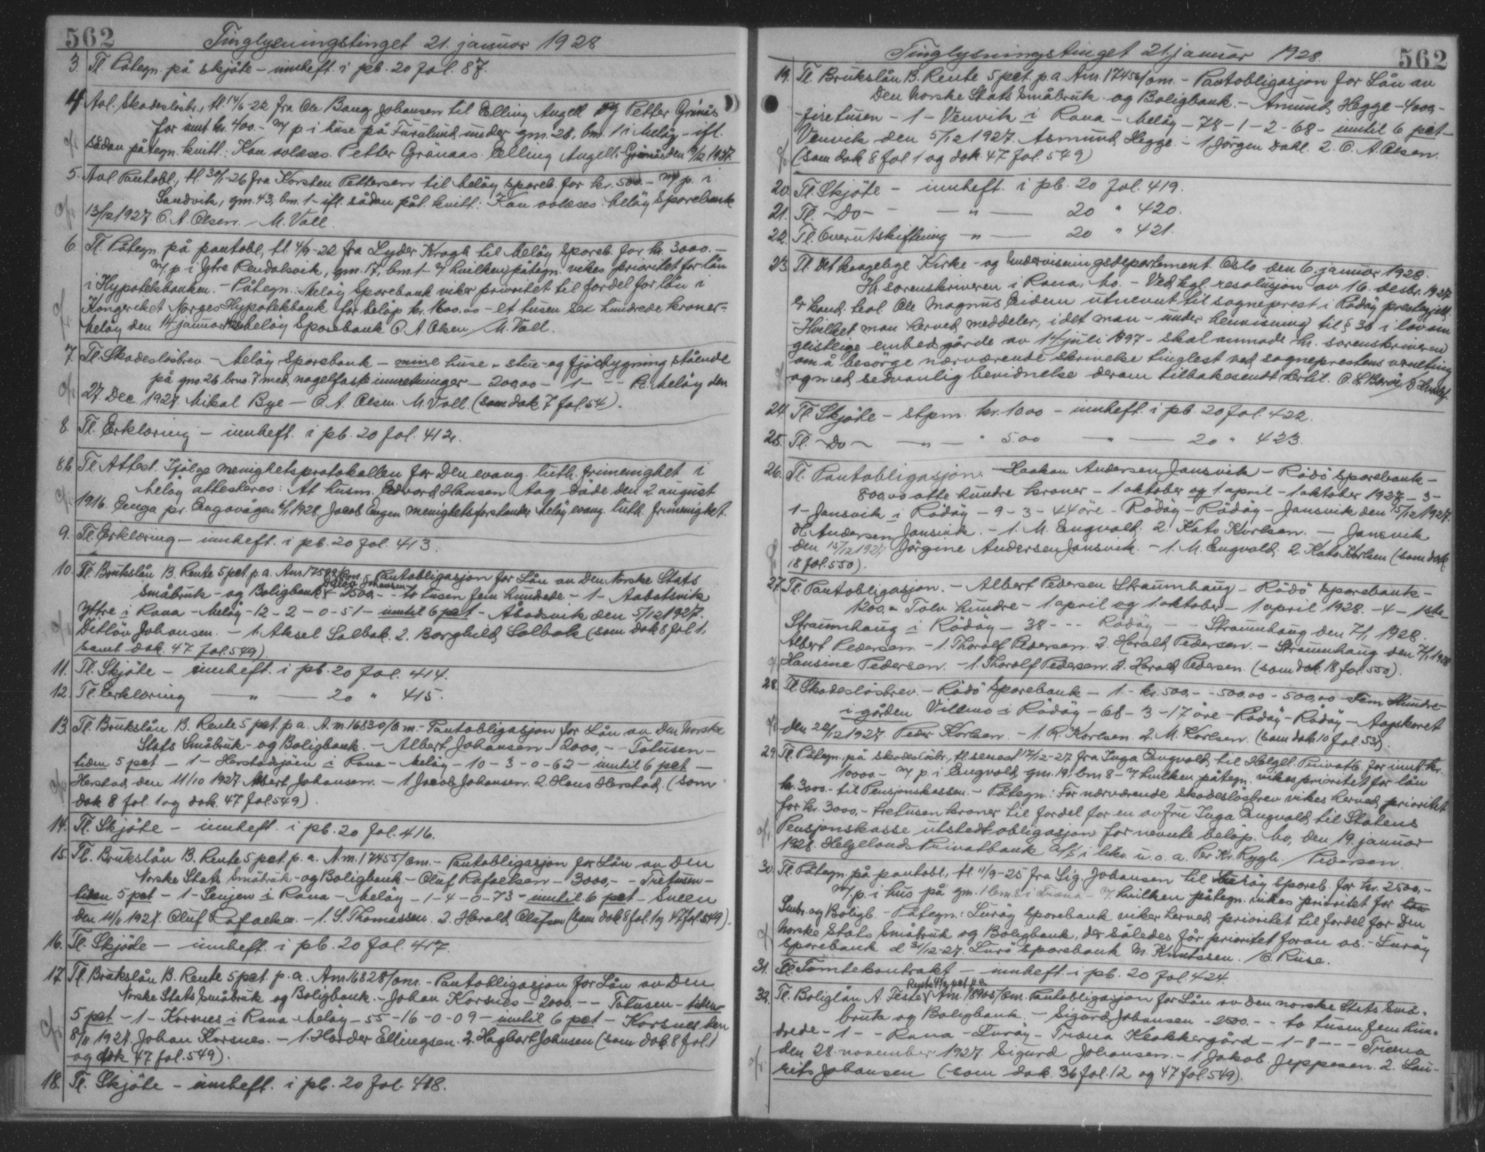 562 Tinglysningstinget 21. januar 1928
3 Tl Påtegn på skjöte - innheft i pb. 20 fol. 87.
4 Avl. Skadeslösbr, tl 14/6-22 fra Ole Bang Johansen til Elling Angell og Petter Grönås
for innt kr. 400.- m/ p i huse på Furulund under gnr. 26, bnr. 1 i Melöy - ift.
sådan påtegn. kvitt: Kan avläses Petter Grönaas Elling Angell. Grönås den 9/12 1927
5. Avl Pantobl, tl 30/1-26 fra Korsten Pettersen til Melöy Spareb. for kr. 500.- m/ p. i
Sandvik, gnr. 43, bnr. 1- ift. sådan påt. kvitt: Kan avläses Melöy Sparebank
13/12 1927 C. A. Olsen. M. Vall
6. Tl Påtegn på pantobl, tl 4/9-22 fra Lyder Krogh til Melöy Spareb. for kr. 3000.-
m/ p i Ytre Rendalsvik, gnr. 17, bnr. 1 - ved hvilken påtegn. vikes prioritet for lån
i Hypotekbanken. - Påtegn. Melöy Sparebank viker prioritet til fordel for lån i
Kongeriket Norges Hypotekbank for belöp kr. 1600.00 - et tusen sex hundrede kroner-
Melöy den januar Melöy Sparebank C. A. Olsen / M. Vall.
7. Tl. Skadeslösbrev - Melöy Sparebank - mine huse - stue- og fjösbygning stående
på gno 26 bno 7 med nagelfaste innretninger - 200.00 - 1 - - - Melöy den
27 Dec. 1927 Mikal Bye - C. A. Olsen M. Vall (som dok 7 fol 54).
8 Tl. Erklæring - innheft. i pb. 20 fol. 412.
8b Tl. Attest. Ifölge menighetsprotokollen for Den evang. luth. frimenighet i
Melöy attesteres: At husm. Edvard Hansen Aag döde den 2 august
1916. Enga pr. Engavågen 4/1 1928 Jacob Engen menighetsforstander Melöy evang. luth. frimenighet.
9. Tl. Erklæring - innheft i pb. 20 fol. 413.
10. Tl Brukslån B. Rente 5 pct p.a. Am. - Pantobligasjon for Lån av Den Norske Stats
Småbruk - og Boligbank - Ditlöv Johansen 2500.- to tusen fem hundrede - 1 - Aabotsvik
Yttre i Rana - Melöy - 12 - 2 - 0 - 51 - inntil 6 pct - den 5/12 1927.
Ditlöv Johansen. - 1. Aksel Solbak. 2. Borghild Solbak (som dok 8 fol 1.
samt dok. 47 fol 549)
11. Tl. Skjöte - innheft i pb. 20 fol. 414.
12. Tl Erklæring — " — 20 " 415.
13. Tl. Brukslån B. Rente 5 pct. p.a. Am. 16830/om - Pantobligasjon for Lån av Den Norske
Stats Småbruk - og Boligbank. - Albert Johansen 2000.- - Totusen -
tiden 5 pct - 1 - i Rana - Melöy - 10 - 3 - 0 - 62 - inntil 6 pct -
Herstad den 11/10 1927. Albert Johansen. - 1 Jacob Johansen. 2. Hans Herstad (som
dok 8 fol 1 og dok. 47 fol 549).
14. Tl. Skjöte - innheft. i pb. 20 fol. 416.
15. Tl. Brukslån B. Rente 5 pct. p.a. Am. 17455/om. - Pantobligasjon for Lån av Den
Norske Stats Småbruk - og Boligbank - Oluf Rafaelsen - 3000.- - Tretusen -
tiden 5 pct - 1 - i Rana - Melöy - 1 - 4 - 0 - 73 - inntil 6 pct -
den 11/11 1927. Oluf Rafaelsen - 1. S. Thomassen. 2. Harald Olufsen (som dok 8 fol 1 og 47 fol 549).
16. Tl. Skjöte - innheft i pb. 20 fol. 417.
17. Tl Brukslån B. Rente 5 pct p.a. Am. 16828/om. - Pantobligasjon for Lån av Den
Norske Stats Småbruk og Boligbank. - Johan Korsnes - 2000.- - Totusen - tiden
5 pct - 1 - Korsnes i Rana - Melöy - 55 - 16 - 0 - 09 - inntil 6 pct - Korsnes den
8/11 1927. Johan Korsnes. - 1. Harder Ellingsen. 2. Hagbart Johnsen (som dok 8 fol 1
og dok 47 fol. 549).
18. Tl. Skjöte - innheft. i pb. 20 fol. 418.
Tinglysningstinget 21 januar 1928 562
19. Tl Brukslån B. Rente 5 pct p.a. Am. 17456/om - Pantobligasjon for Lån av
Den Norske Stats Småbruk - og Boligbank. - Asmund Hegge - 4000.-
- firetusen - 1 - Venvik i Rana - Melöy - 78 - 1 - 2 - 68 - inntil 6 pct -
Venvik den 5/12 1927. Asmund Hegge. - 1 Jörgen Dahl. 2. C. A. Olsen.
(som dok 8 fol 1 og dok 47 fol 549)
20. Tl. Skjöte - innheft i pb. 20 fol. 419.
21. Tl. - Do - — " — 20 " 420.
22. Tl. Overutskiftning — " — 20 " 421.
23. Tl Det kongelige Kirke - og Undervisningsdepartement Oslo den 6. januar 1928.
Hr. sorenskriveren i Rana, Mo. - Ved kgl. resolusjon av 16. desbr. 1927
er cand. teol Ole Magnus Eidem utnevnt til sogneprest i Rödöy prestegjeld
Hvilket man herved meddeler, i det man - under henvisning til § 36 i lov om
geistlige embedsgårde av 14 juli 1897 - skal anmode hr. sorenskriveren
om å besörge nærværende skrivelse tinglest ved sogneprestens
og med sedvanlig bevidnelse derom tilbakesendt hertil.
24. Tl Skjöte - stpm. kr. 1000 - innheft i pb. 20 fol. 422.
25. Tl. - Do - — " — " 500 — " — 20 " 423.
26. Tl. Pantobligasjon. - Haakon Andersen Jansvik - Rödö Sparebank -
800.00 otte hundre kroner - 1 oktober og 1 april - 1 oktober 1927 - 3 -
1 - Jansvik i Rödöy - 9 - 3 - 44 öre - Rödöy - Rödöy - Jansvik den 15/12 1927.
H. Andersen Jansvik. - 1. M. Engvold. 2. Kato Karlsen. - Jansvik
den 15/12 1927 Jörgine Andersen Jansvik. - 1. M. Engvold. 2 Kato Karlsen (som dok
18 fol. 550).
27. Tl. Pantobligasjon. - Albert Pedersen Straumhaug - Rödö Sparebank -
1200.- Tolv hundre - 1 april og 1 oktober - 1 april 1928 - 4 - 1ste
Straumhaug i Rödöy - 38 - - - Rödöy - - Straumhaug den 7/1 1928.
Albert Pedersen - 1. Thorolf Pedersen. 2 Harald Pedersen. - Straumhaug den 7/1 1928
Hansine Pedersen. - 1. Thorolf Pedersen. 2. Harald Pedersen. (som dok 18 fol. 550).
28. Tl Skadeslösbrev. - Rödö Sparebank - 1 - kr. 500. - - 500.00 - 500.00 - Fem Hundre -
i gården i Rödöy - 68 - 3 - 17 öre - Rödöy - Rödöy - Aagskaret
den 22/12 1927. Peder Karlsen. - 1. R. Karlsen 2. M. Karlsen. (som dok 10 fol. 52)
29 Tl. Påtegn på skadeslösbr, tl senest 17/12-27 fra Inga Engvold, til Helgel. Privatb for innt. kr.
10000.- m/ p. i Engvold, gnr. 19. bnr. 8 - ved hvilken påtegn. vikes prioritet for lån
kr. 3000.- til Pensjonskassen. - Påtegn: For nærværende skadeslösbrev vikes herved, prioritet
for kr. 3000.- tretusen kroner til fordel for en av fru Inga Engvold, til Statens
Pensjonskasse utstedt obligasjon for nevnte belöp. Mo, den 19. januar
1928. Helgelands Privatbank A/S i likv. u. o. a. Per Kr. Rygh / Pedersen.
30. Tl. Påtegn. på pantobl, tl 11/9-25 fra Sig. Johansen til Luröy Spareb. for kr. 2500.-
m/ p. i hus på gnr. 1 bnr. 8 i Træna - ved hvilken påtegn. vikes prioritet for
Småb. og Boligb. - Påtegn: Luröy Sparebank viker herved, prioritet til fordel for Den
Norske Stats Småbruk og Boligbank, der således får prioritet foran os. - Luröy
Sparebank d 21/12-27. Lurö Sparebank M. Knutssen. / B. Riise.
31. Tl Tomtekontrakt - innheft i pb. 20 fol. 424.
32. Tl. Boliglån A Pantobligasjon for Lån av den norske Stats Små-
bruk og Boligbank - Sigurd Johansen - 2500. - - to tusen fem hun-
drede - 1 - - Rana - Luröy - Træna Klokkergård - 1 - 8 - - - Træna
den 28. november 1927. Sigurd Johansen. - 1 Jakob Jeppesen. 2. Lau-
rits Johansen (som dok. 36 fol. 12 og 47 fol 549).